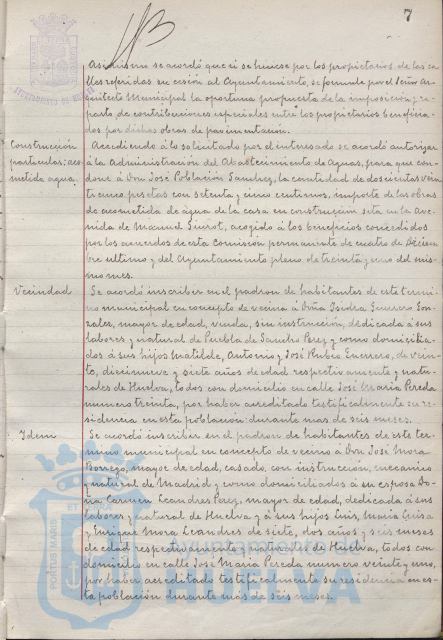 7
Asimismo se acordó que si se hiciese por los propietarios de las ca-
lles referidas su cesión al Ayuntamiento, se formule por el Señor Ar-
quitecto Municipal la oportuna propuesta de la imposición y re-
parto de contribuciones especiales entre los propietarios beneficia-
dos por dichas obras de pavimentación.
Construcción
particular: aco-
metida agua.
Accediendo a lo solicitado por el interesado se acordó autorizar
á la Administración del Abastecimiento de Aguas, para que con-
done á Don José Población Sanchez, la cantidad de doscientas vein
ticinco pesetas con setenta y cinco centimos, importe de las obras
de acometida de agua de la casa en construcción sita en la Ave-
nida de Manuel Siurot, acogido á los beneficios concedidos
por los acuerdos de esta Comisión permanente de cuatro de Diciem-
bre ultimo y del Ayuntamiento pleno de treinta y uno del mis-
mo mes.
Vecindad
Se acordó inscribir en el padron de habitantes de este termi-
no municipal en concepto de vecina á Doña Isidra Guerrero Gon-
zales, mayor de edad, viuda, sin instrucción, dedicada á sus
labores y natural de Puebla de Sancho Perez y como domicilia-
dos á sus hijos Matilde, Antonio y José Rubio Guerrero, de vein-
te, diecinueve y siete años de edad respectivamente y natu-
rales de Huelva, todos con domicilio en calle José Maria Pereda
numero treinta, por haber acreditado testificalmente su re-
sidencia en esta población durante mas de seis meses.
Idem
Se acordó inscribir en el padron de habitantes de este ter-
mino municipal en concepto de vecino á Don José Mora
Borrego, mayor de edad, casado, con instrucción, mecanico
y natural de Madrid y como domiciliados á su esposa Do-
ña Carmen Leandres Perez, mayor de edad, dedicada á sus
labores y natural de Huelva y á sus hijos Luis, Maria Luisa
y Enrique Mora Leandres de siete, dos años y seis meses
de edad respectivamente y naturales de Huelva, todos con
domicilio en calle José Maria Pereda numero veinte y uno,
por haber acreditado testificalmente su residencia en es-
ta población durante más de seis meses.
PORTUS MARIS
Ayuntamiento de
HUELVA